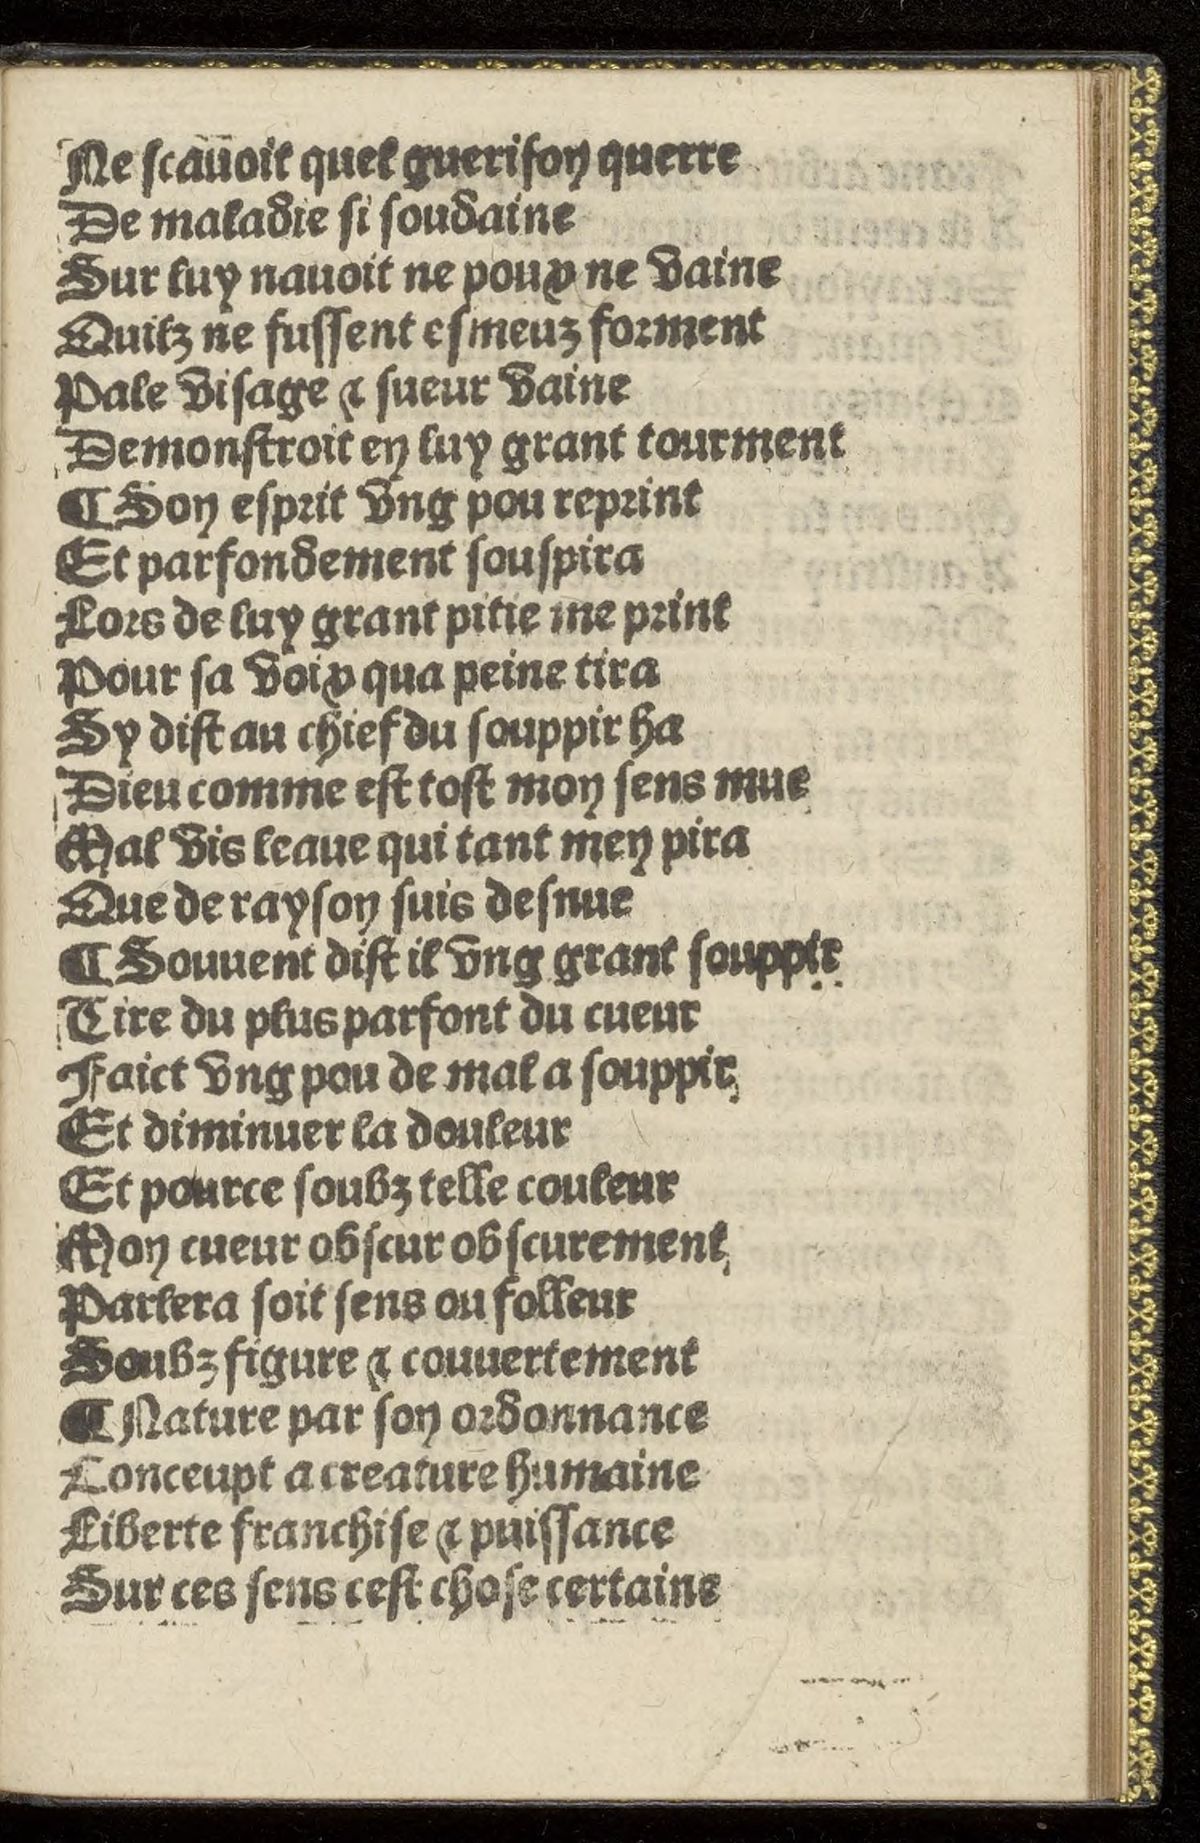 Ne scauoit quel guerison querre
De maladie si soudaine
Sur luy nauoit ne poux ne vaine
Quilz ne fussent esmeuz forment
Pale visage & sueur vaine
Demonstroit en luy grant tourment
¶ Son esprit vng pou reprint
Et parfondement souspira
Lors de luy grant pitie me print
Pour sa voix qua peine tira
Sy dist au chief du souppir ha
Dieu comme est tost mon sens mue
Mal vis leaue qui tant men pira
Que de rayson suis desnue
¶ Souuent dist il vng grant souppir
Tire du plus parfont du cueur
Faict vng pou de mal a souppir
Et diminuer la douleur
Et pource soubz telle couleur
Mon cueur obscur obscurement
Parlera soit sens ou folleur
Soubz figure & couuertement
¶ Nature par son ordonnance
Conceupt a creature humaine
Liberte franchise & puissance
Sur ces sens cest chose certaine